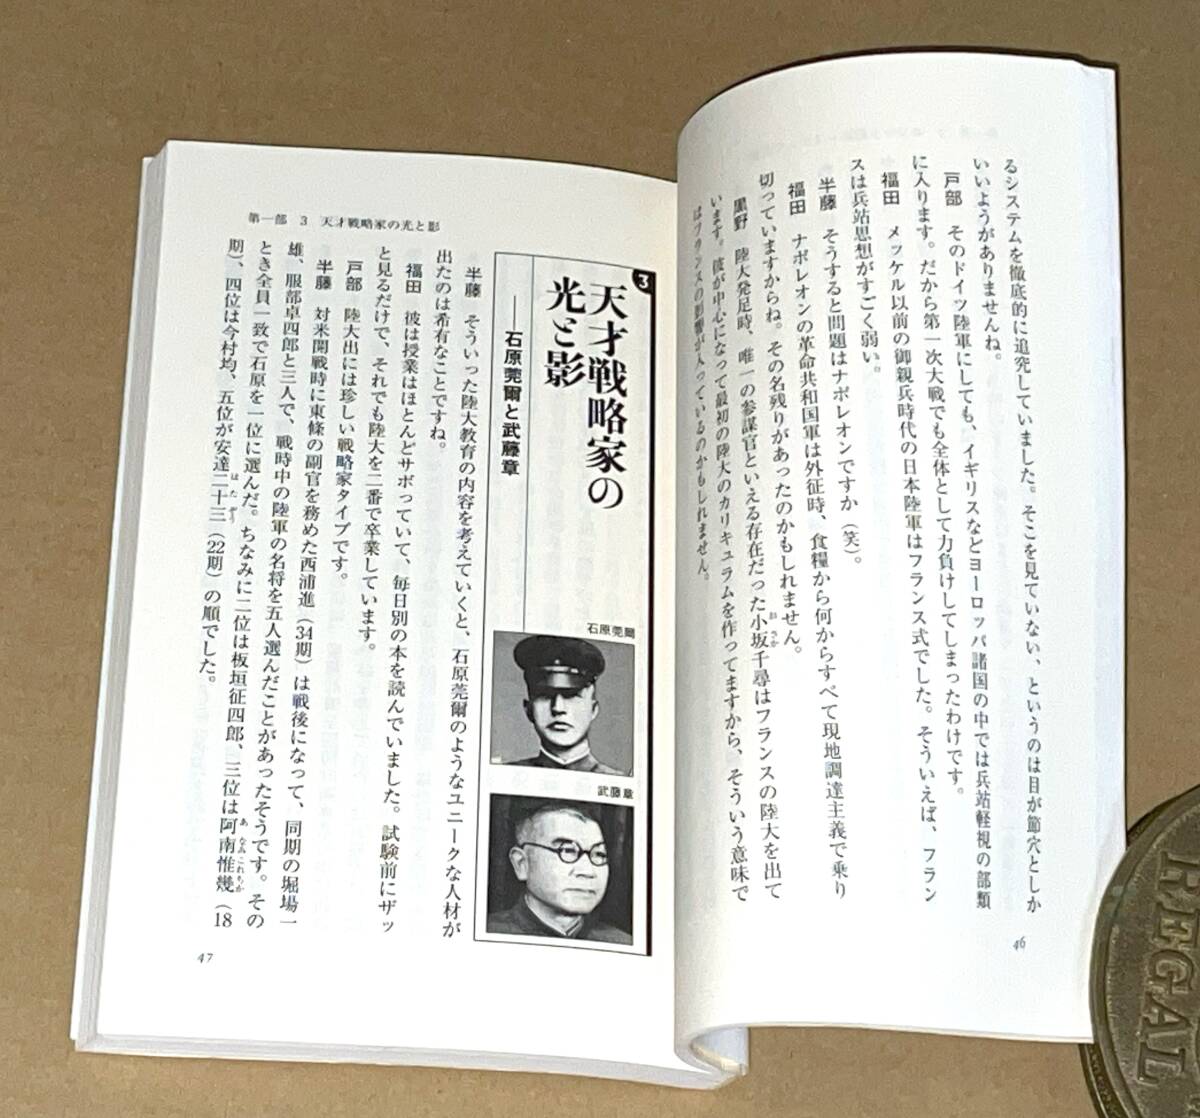 るシステムを徹底的に追究していました。そこを見ていない、というのは目が節穴としか
いいようがありませんね。
戸部　そのドイツ陸軍にしても、イギリスなどヨーロッパ諸国の中では兵站軽視の部類
に入ります。だから第一次大戦でも全体として力負けしてしまったわけです。
福田　メッケル以前の御親兵時代の日本陸軍はフランス式でした。そういえば、フラン
スは兵站思想がすごく弱い。
半藤　そうすると問題はナポレオンですか（笑）。
福田　ナポレオンの革命共和国軍は外征時、食糧から何からすべて現地調達主義で乗り
切っていますからね。その名残りがあったのかもしれません。
黒野　陸大発足時、唯一の参謀官といえる存在だった小坂千尋はフランスの陸大を出て
おさか
います。彼が中心になって最初の陸大のカリキュラムを作ってますから、そういう意味で
はフランスの影響が入っているのかもしれません。
46
第一部　3　天才戦略家の光と影
3
天才戦略家の
光と影
――石原莞爾と武藤章
石原莞爾
武藤章
半藤　そういった陸大教育の内容を考えていくと、石原莞爾のようなユニークな人材が
出たのは希有なことですね。
福田　彼は授業はほとんどサボっていて、毎日別の本を読んでいました。試験前にザッ
と見るだけで、それでも陸大を二番で卒業しています。
戸部　陸大出には珍しい戦略家タイプです。
半藤　対米開戦時に東條の副官を務めた西浦進（34期）は戦後になって、同期の堀場一
雄、服部卓四郎と三人で、戦時中の陸軍の名将を五人選んだことがあったそうです。その
とき全員一致で石原を一位に選んだ。ちなみに二位は板垣征四郎、三位は阿南惟幾（18
あなみこれちか
期）、四位は今村均、五位が安達二十三（22期）の順でした。
はたぞう
47
REGAL